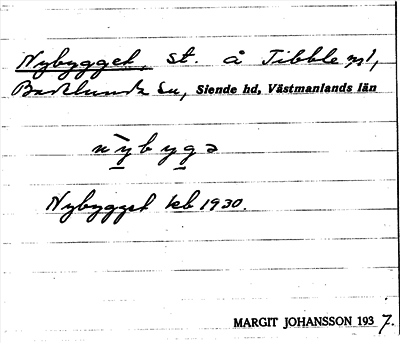 Nybygget, st. å Tibble m1,
Badelunda sn, Siende hd, Västmanlands län
nỳbygə
Nybygget kb 1930.
MARGIT JOHANSSON 1937.